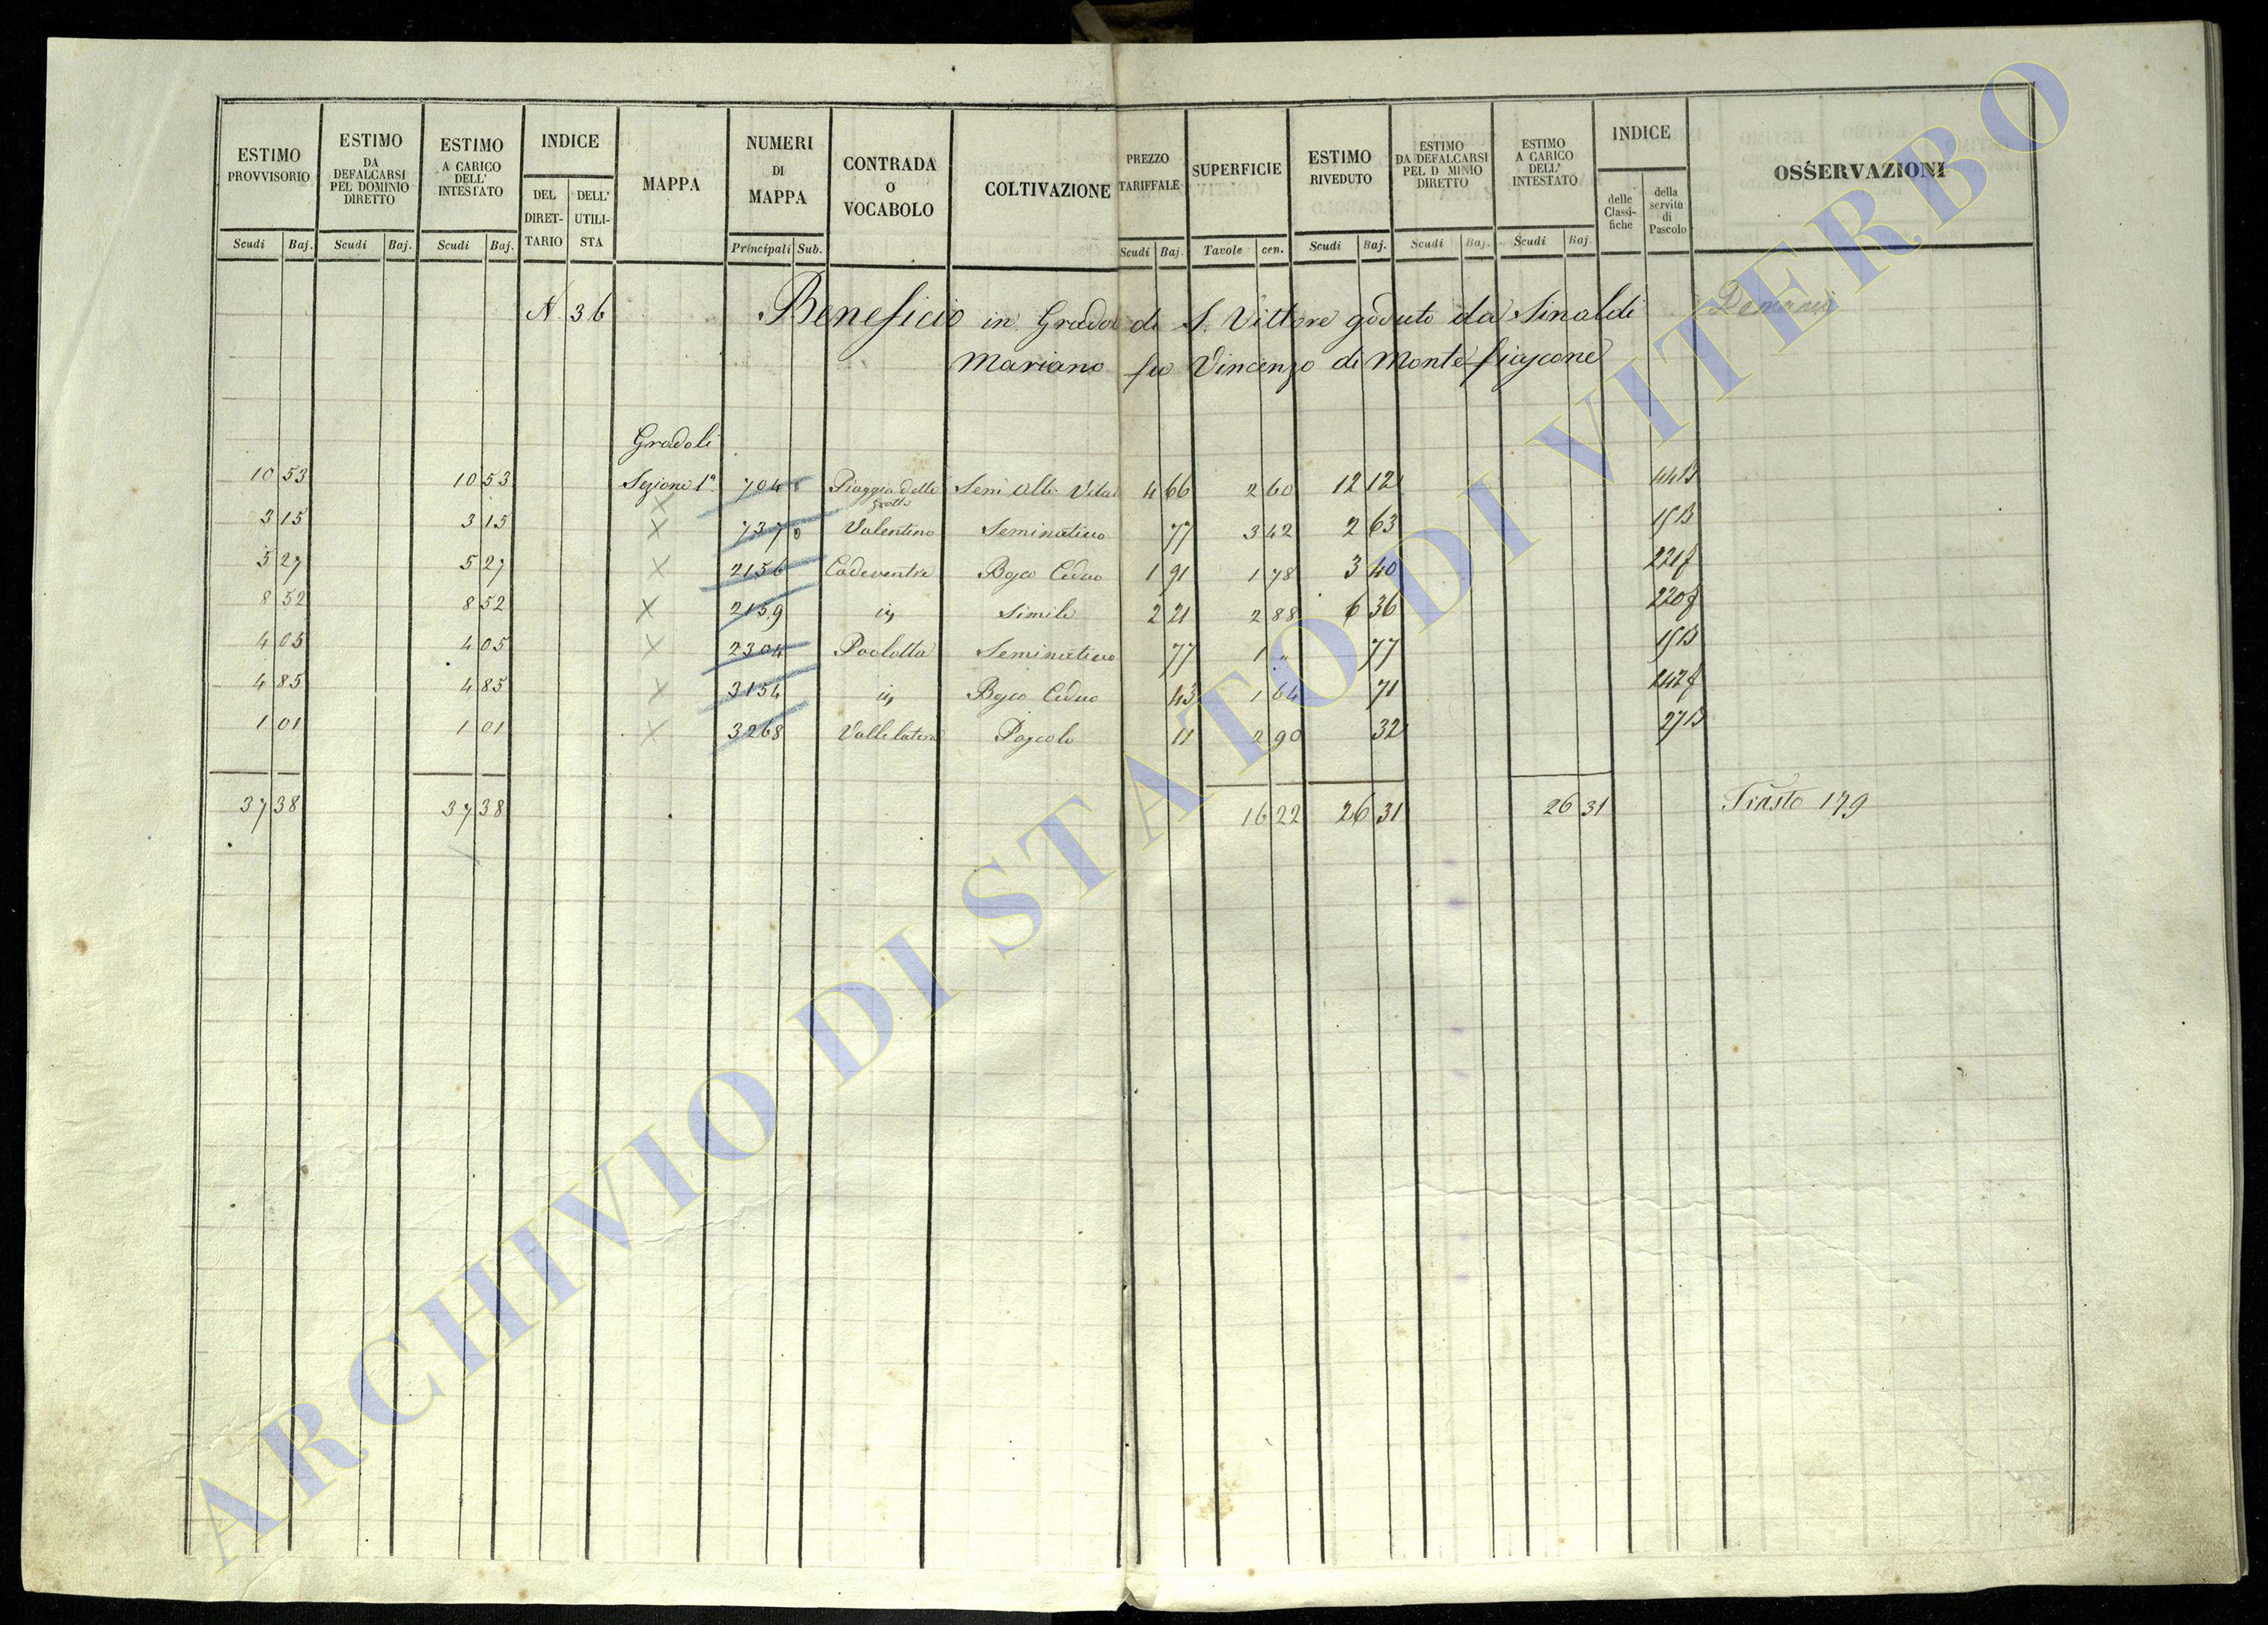 ESTIMO PROVVISORIO | ESTIMO DA DEFALCARSI PEL DOMINIO DIRETTO | ESTIMO A CARICO DELL' INTESTATO | INDICE | MAPPA | NUMERI DI MAPPA | CONTRADA O VOCABOLO | COLTIVAZIONE | PREZZO TARIFFALE | SUPERFICIE | ESTIMO RIVEDUTO | ESTIMO DA DEFALCARSI PEL D MINIO DIRETTO | ESTIMO A CARICO DELL' INTESTATO | INDICE | OSSERVAZIONI
DEL DIRET-TARIO | DELL' UTILI-STA | delle Classi-fiche | della servitù di Pascolo
Scudi | Baj. | Scudi | Baj. | Scudi | Baj. | Principali | Sub. | Scudi | Baj. | Tavole | cen. | Scudi | Baj. | Scudi | Baj. | Scudi | Baj.
N 36 Beneficio in Gradoli di S. Vittore goduto da Sinaldi
Mariano fu Vincenzo di Montefiascone
Gradoli
10 53 | 10 53 | Sezione 1ª | 704 | Piaggia delle Grotte | Semi Alb. Vitat | 4 66 | 2 60 | 12 12 | 44B
3 15 | 3 15 | X | 737 | Valentino | Seminativo | 77 | 3 42 | 2 63 | 15B
5 27 | 5 27 | X | 2156 | Cadeventre | Bosco Ceduo | 1 91 | 1 78 | 3 40 | 221f
8 52 | 8 52 | X | 2159 | is | Simile | 2 21 | 2 88 | 6 36 | 220f
4 05 | 4 05 | X | 2304 | Paoletta | Seminativo | 77 | 1 „ | 77 | 15B
4 85 | 4 85 | X | 3154 | is | Bosco Ceduo | 43 | 1 64 | 71 | 242f
1 01 | 1 01 | X | 3268 | Vallelatera | Pascolo | 11 | 2 90 | 32 | 27B
37 38 | 37 38 | 16 22 | 26 31 | 26 31 | 179
ARCHIVIO DI STATO DI VITERBO